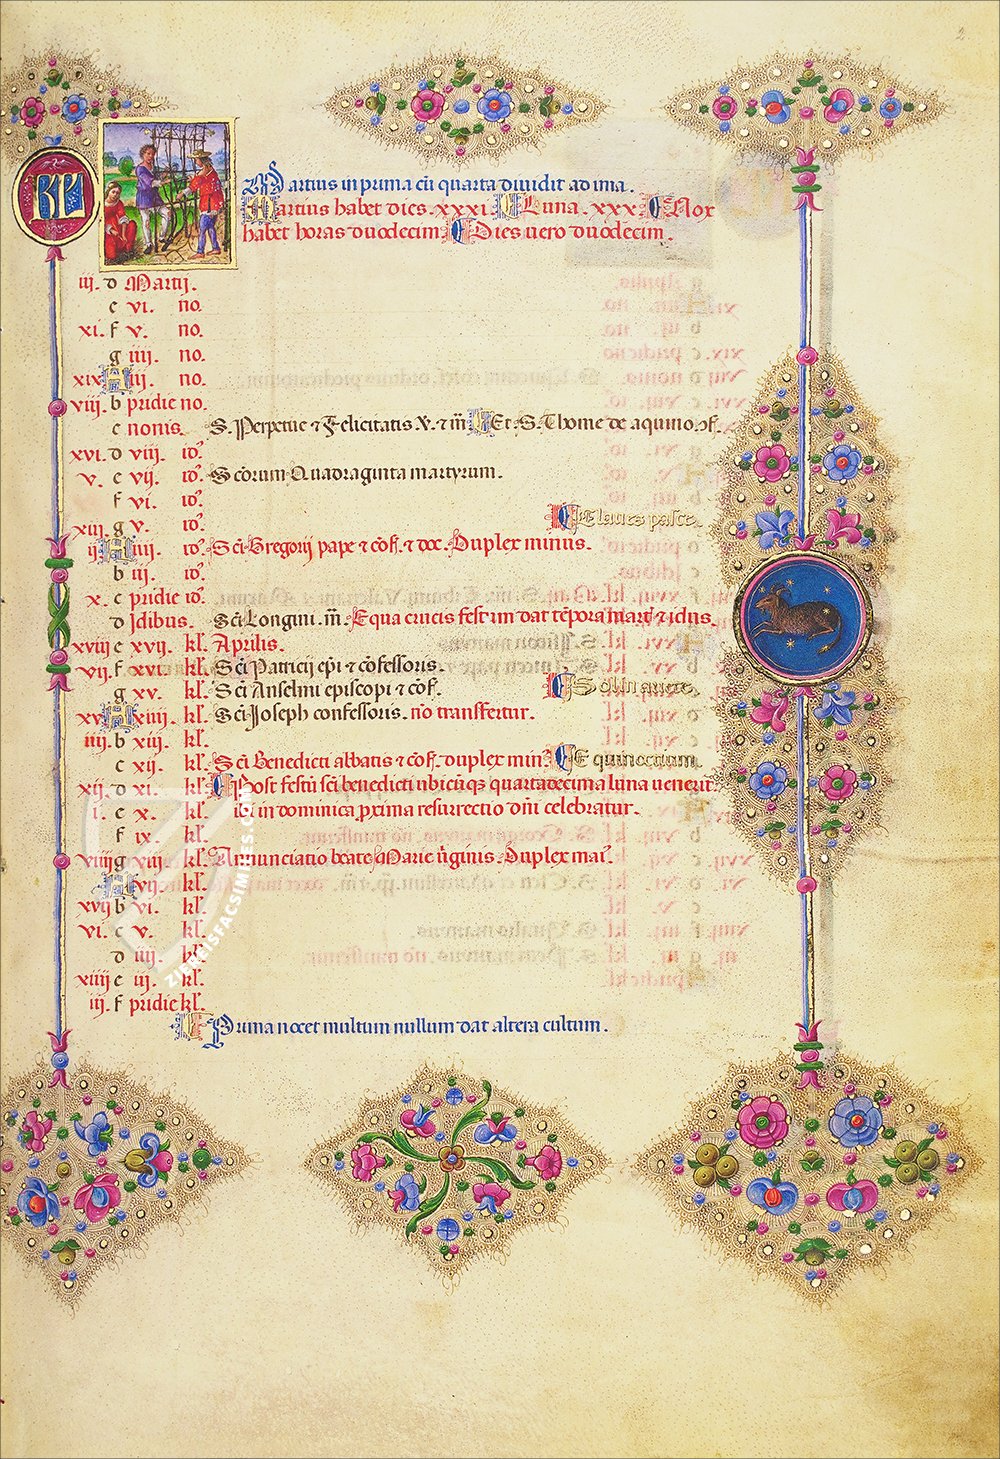 2
KL
Martius in prima cū quarta diuidit ad ima.
Martius habet dies. xxxi. Luna. xxx. Nox
habet horas duodecim. Dies uero duodecim.
iii. d Martij.
e vi. no.
xi. f v. no.
g iiii. no.
xix A iii. no.
viii. b pridie no.
c nonis. S. Perpetue ⁊ Felicitatis V. ⁊ m̄. Et S. Thome de aquino ɔf.
xvi. d viii. id᷒.
v. e vij. id᷒. Sc̄orum Quadraginta martyrum.
f vi. id᷒.
xiii g v. id᷒. Claues pasce.
ij A iiij. id᷒. Sc̄i Gregorij pape ⁊ cōf. ⁊ doc. Duplex minus.
b iij. id᷒.
x. c pridie id᷒.
d Idibus. Sc̄i Longini. m̄. Equa crucis fest̄ im dat tēpora mart⁊ idus.
xviii e xvij. kl. Aprilis.
vij. f xvi. kl. Sc̄i Patricij ep̄i ⁊ cōfessoris.
g xv. kl. Sc̄i Anselmi episcopi ⁊ cōf. Sol in ariete.
xv A xiiij. kl. Sc̄i Joseph confessoris. nō transfertur.
iiij. b xiij. kl.
c xij. kl. Sc̄i Benedicti abbatis ⁊ cōf. duplex min᷒. Equinoctium.
xij. d xi. kl. Post festū sc̄i benedicti ubicūqs quartadecima luna uenerit.
i. e x. kl. ibi in dominica proxima resurrectio dn̄i celebratur.
f ix. kl.
viiij g viij. kl. Annunciatio beate Marie v̄ginis. Duplex mai᷒.
A vij. kl.
xvij b vi. kl.
vi. c v. kl.
d iiij. kl.
xiiij e iij. kl.
iij. f pridie kl.
Prima nocet multum nullum dat altera cultum.
ZIEREISFACSIMILES.COM